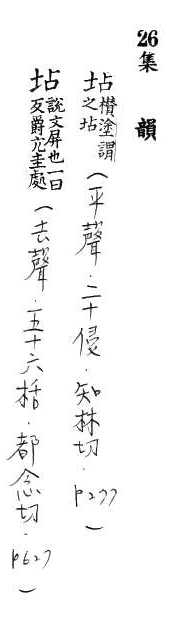 26集 韻
坫欑塗謂之坫(平聲．二十侵．知林切．p277)
坫說文屏也一曰反爵亢圭處(去聲．五十六㮇．都念切．p627)